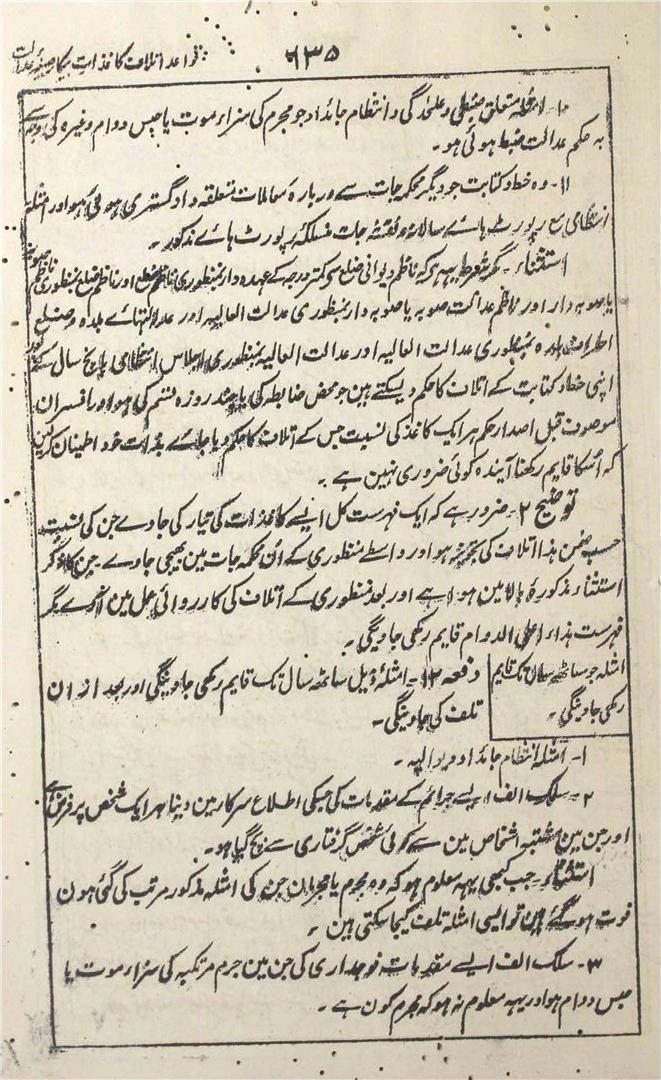 ۶۳۵
قواعد اتلاف کاغذات بیکار صیغہ عدالت
۱۰۔ امثلہ متعلق ضبطی و علحدگی و انتظام جائداد جو مجرم کی سزاء موت یا حبس دوام وغیرہ کی وجہ سے
بہ حکم عدالت ضبط ہوئی ہو۔
۱۱۔ وہ خط و کتابت جو دیگر محکمہ جات سے دربارہ معاملات متعلقہ دادگستری ہوئی ہو اور امثلہ
انتظامی مع رپورٹ ہائے سالانہ و نقشہ جات منسلکہ رپورٹ ہائے مذکور۔
استثناء۔ مگر شرط یہہ ہے کہ ناظم دیوانی ضلع سے کمتر درجہ کے عہدہ دار بمنظوری ناظم ضلع اور ناظم ضلع بمنظوری ناظم صوبہ
یا صوبہ دار اور ناظم عدالت صوبہ یا صوبہ دار بمنظوری عدالت العالیہ اور عدالتہائے بلدہ و ضلع
اطراف بلدہ بمنظوری عدالت العالیہ اور عدالت العالیہ بمنظوری اجلاس انتظامی پانچ سال کے بعد
اپنی خط و کتابت کے اتلاف کا حکم دیسکتے ہین جو محض ضابطہ کی یا چند روزہ قسم کی ہو اور افسران
موصوف قبل اصدار حکم ہر ایک کاغذ کی نسبت جس کے اتلاف کا حکم دیا جائے بذات خود اطمینان کرلین
کہ اُسکا قایم رکھنا آیندہ کوئی ضروری نہین ہے۔
توضیح ۲۔ ضرور ہے کہ ایک فہرست کل ایسے کاغذات کی تیار کی جاوے جن کی نسبت
حسب ضمن ہذا اتلاف کی تجویز ہو اور واسطے منظوری کے اُن محکمہ جات مین بھیجی جاوے جن کا ذکر
استثناء مذکورہ بالا مین ہوا ہے اور بعد منظوری کے اتلاف کی کارروائی عمل مین آوے مگر
فہرست ہذا علی الدوام قایم رکھی جاویگی۔
امثلہ جو ساٹھ سال تک قایم
رکھی جاوینگی۔
دفعہ ۱۲۔ امثلہ ذیل ساٹھ سال تک قایم رکھی جاوینگی اور بعد ازان
تلف کی جاوینگی۔
۱۔ امثلہ انتظام جائداد و دیوالیہ۔
۲۔ سلک الف ایسے جرائم کے مقدمات کی جسکی اطلاع سرکار مین دینا ہر ایک شخص پر فرض ہے
اور جن مین مشتبہ اشخاص مین سے کوئی شخص گرفتاری سے بچ گیا ہو۔
استثناء۔ جب کبھی یہہ معلوم ہو کہ وہ مجرم یا مجرمان جن کی امثلہ مذکور مرتب کی گئی ہون
فوت ہو گئے ہین تو ایسی امثلہ تلف کیجا سکتی ہین۔
۳۔ سلک الف ایسے مقدمات فوجداری کی جن مین جرم مرتکبہ کی سزاء موت یا
حبس دوام ہو اور یہہ معلوم نہ ہو کہ مجرم کون ہے۔